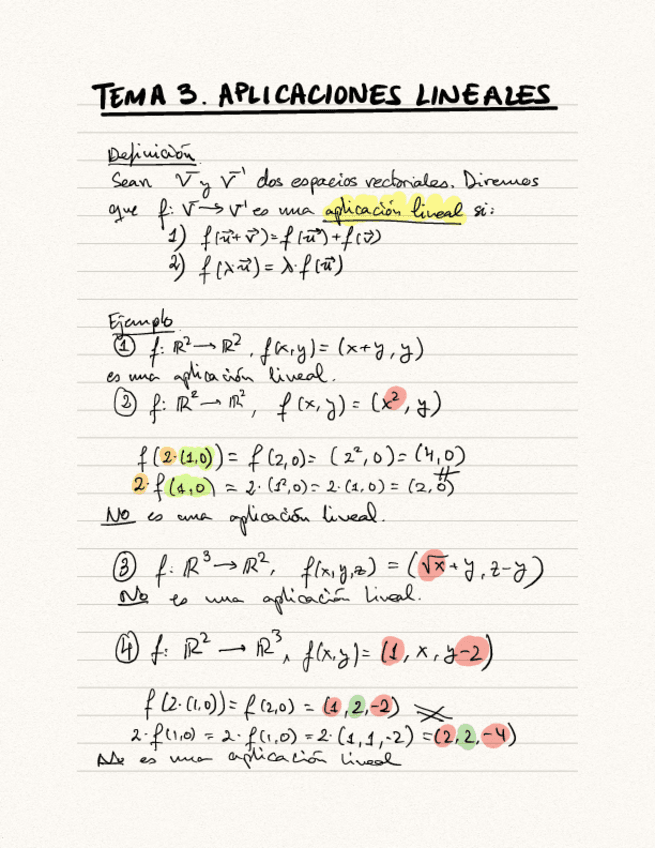 TEMA 3. APLICACIONES LINEALES
Definición
Sean V y V' dos espacios vectoriales. Diremos
que f: V → V' es una aplicación lineal si:
1) f(u⃗+v⃗)=f(u⃗)+f(v⃗)
2) f(λu⃗)=λ·f(u⃗)
Ejemplo
① f: ℝ² → ℝ², f(x,y)=(x+y, y)
es una aplicación lineal.
② f: ℝ² → ℝ², f(x,y)=(x², y)
f(2·(1,0))= f(2,0)= (2²,0)=(4,0)
2·f(1,0) = 2·(1²,0)=2·(1,0)=(2,0)
No es una aplicación lineal.
③ f: ℝ³ → ℝ², f(x,y,z) = (√x+y, z-y)
No es una aplicación lineal.
④ f: ℝ² → ℝ³, f(x,y)= (1, x, y-2)
f(2·(1,0))=f(2,0) = (1,2,-2)
2·f(1,0) = 2·f(1,0) =2·(1,1,-2) =(2,2,-4)
No es una aplicación lineal